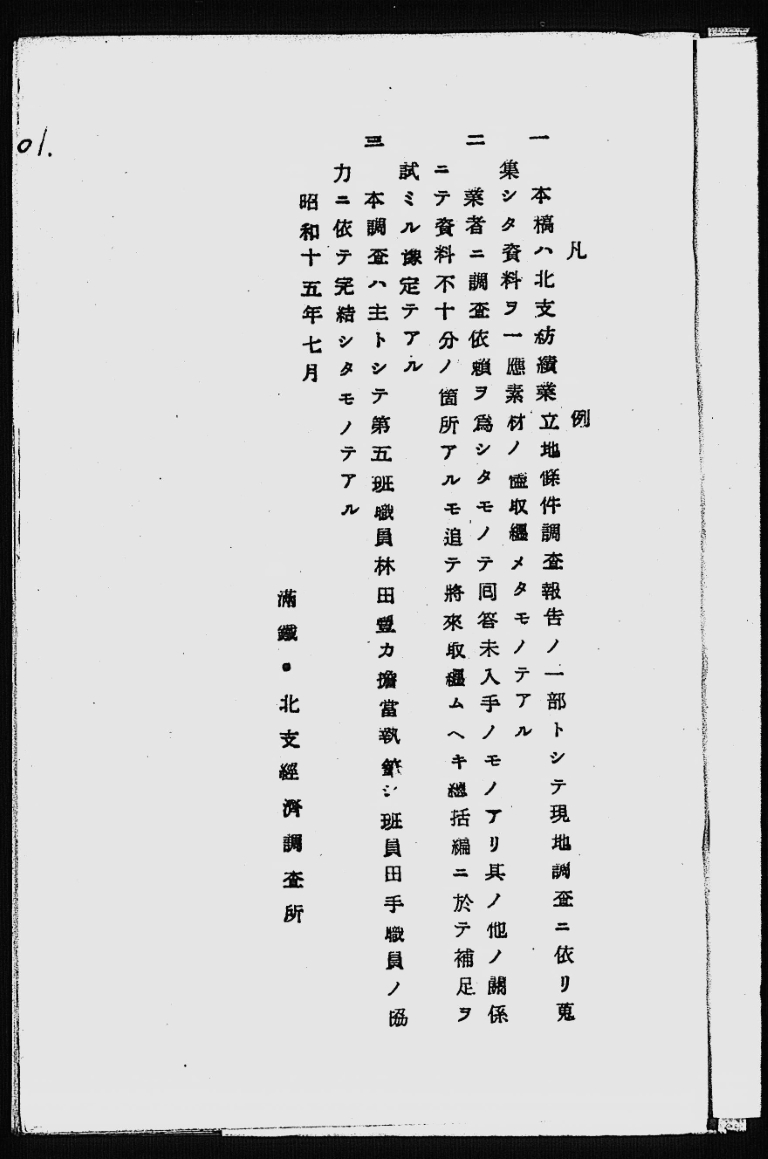 凡例
一 本稿ハ北支紡績業立地條件調査報告ノ一部トシテ現地調査ニ依リ蒐
集シタ資料ヲ一應素材ノ儘取纒メタモノテアル
二 業者ニ調査依頼ヲ爲シタモノテ囘答未入手ノモノアリ其ノ他ノ關係
ニテ資料不十分ノ箇所アルモ追テ將來取纒ムヘキ總括編ニ於テ補足ヲ
試ミル豫定テアル
三 本調査ハ主トシテ第五班職員林田豐カ擔當執筆シ班員田手職員ノ協
力ニ依テ完結シタモノテアル
昭和十五年七月
滿鐵・北支經濟調査所
01.